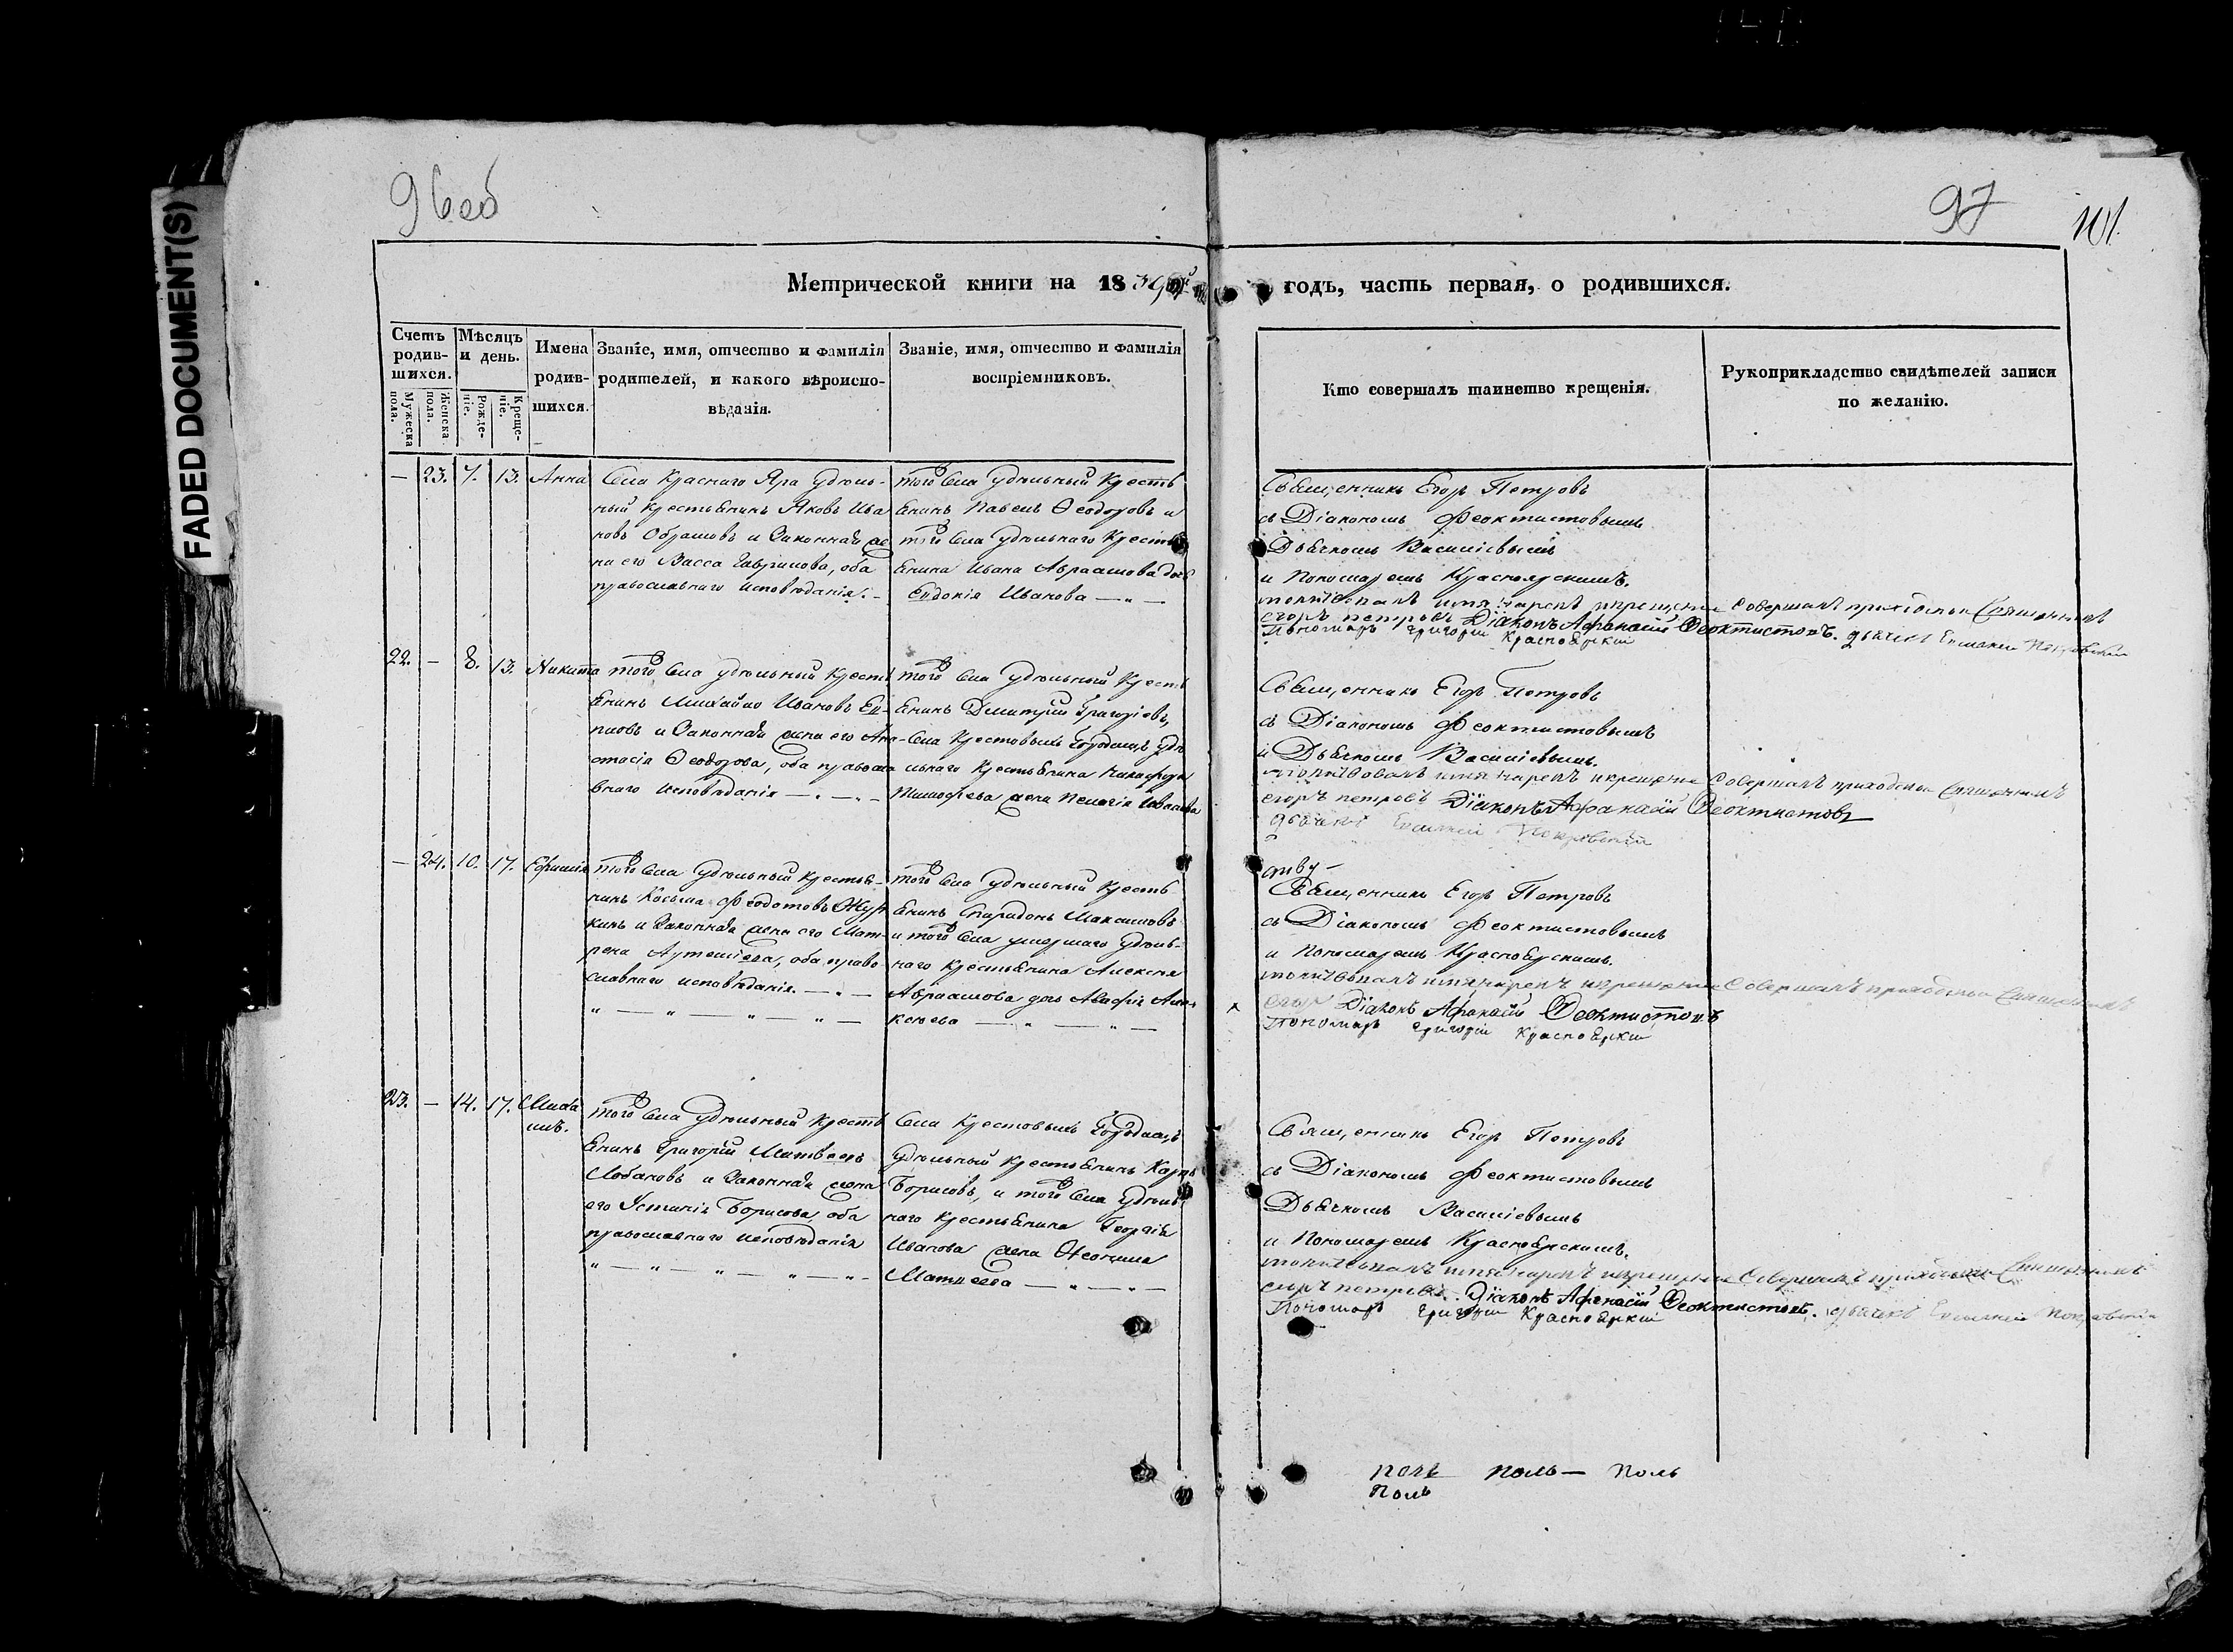 FADED DOCUMENT(S)
96 об
97
101.
Метрической книги на 1839й
годъ, часть первая, о родившихся.
Счетъ родив-шихся.
Мѣсяцъ и день.
Имена родив-шихся.
Званіе, имя, отчество и фамилія
родителей, и какого вѣроиспо-
вѣданія.
Званіе, имя, отчество и фамилія
воспріемниковъ.
Мужеска пола.
Женска пола.
Рожде-ніе.
Креще-ніе.
Кто совершалъ таинство крещенія.
Рукоприкладство свидѣтелей записи
по желанію.
— 23. 7. 13. Анна
Села Краснаго Яра удѣль-
ный крестьянинъ Яковъ Ива
новъ Обрамовъ и законная же
на его Васса Гаврилова, оба
православнаго исповѣданія. –
того Села удѣльный кресть
янинъ Павелъ Ѳеодоровъ и
того Села удѣльнаго кресть
янина Ивана Авраамова дочь
Евдокія Иванова — „ —
Священникъ Егоръ Петровъ
съ Діакономъ Феоктистовымъ
Дьячкомъ Василіевымъ
и Пономаремъ Красноярскимъ.
молитвовалъ имя нарекъ и крещение Совершалъ приходской Священникъ
егоръ петровъ Діаконъ Афанасій Ѳеоктистовъ. дьячекъ Покровскій
Пономарь григорій Краснояркій
22. — 8. 13. Никита
того Села удѣльный кресть
янинъ Михайло Ивановъ
и законная жена его Ана-
стасія Ѳеодорова, оба правосла
внаго исповѣданія — „ — „ –
того Села удѣльный кресть
янинъ Дмитрій Григоріевъ,
Села Крестовыхъ Городищъ удѣ
льнаго крестьянина Никифора
Тимофеева жена Пелагія Иванова
Священникъ Егоръ Петровъ
съ Діакономъ Феоктистовымъ
и Дьячкомъ Василіевымъ.
молитвовалъ имя нарекъ и крещение Совершалъ приходской Священникъ
егоръ петровъ Діаконъ Афанасій Ѳеоктистовъ
дьячекъ Покровскій
— 24. 10. 17.
того Села удѣльный крестья-
нинъ Косьма Федотовъ
и законная жена его Мат-
рена Артемьева, оба право
славнаго исповѣданія. — „ —
„ — „ — „ — „ —
того Села удѣльный кресть
янинъ Спиридонъ Максимовъ
и того Села умершаго удѣль-
наго крестьянина Алексея
Авраамова дочь Агафія Але-
ксѣева — „ — „ —
Священникъ Егоръ Петровъ
съ Діакономъ Феоктистовымъ
и Пономаремъ Красноярскимъ.
молитвовалъ имя нарекъ и крещение Совершалъ приходской Священникъ
егоръ Діаконъ Афанасій Ѳеоктистовъ
Пономарь григорій Краснояркій
23. — 14. 17. Миха
илъ.
того Села Удѣльный кресть
янинъ Григорій Матвѣевъ
Лобановъ и законная жена
его Устинія Борисова, оба
православнаго исповѣданія
„ — „ — „ — „ — „ –
Села Крестовыхъ Городищъ
удѣльный крестьянинъ Карпъ
Борисовъ, и того Села удѣль
наго крестьянина Георгія
Иванова жена
Матвеева — „ — „ —
Священникъ Егоръ Петровъ
съ Діакономъ Феоктистовымъ
Дьячкомъ Василіевымъ
и Пономаремъ Красноярскимъ.
молитвовалъ имя нарекъ и крещение Совершалъ приходской Священникъ
егоръ петровъ. Діаконъ Афанасій Ѳеоктистовъ. дьячекъ Покровскій
Пономарь григорій Краснояркій
поль поль — поль
поль